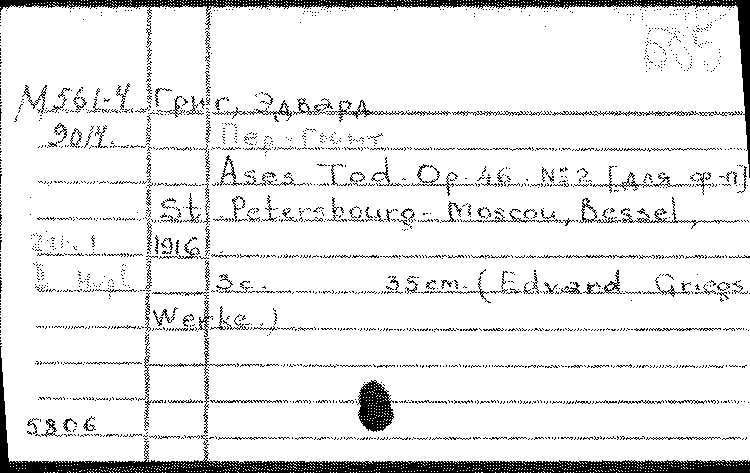 М561-4 Григ, Эдвард
9014. Пер-Гюнт
Ases Tod. Op. 46. № 2 [для ф-п]
St. Petersbourg - Moscou, Bessel,
1916.
3 с. 35 cm. (Edvard Griegs
Werke.)
5806